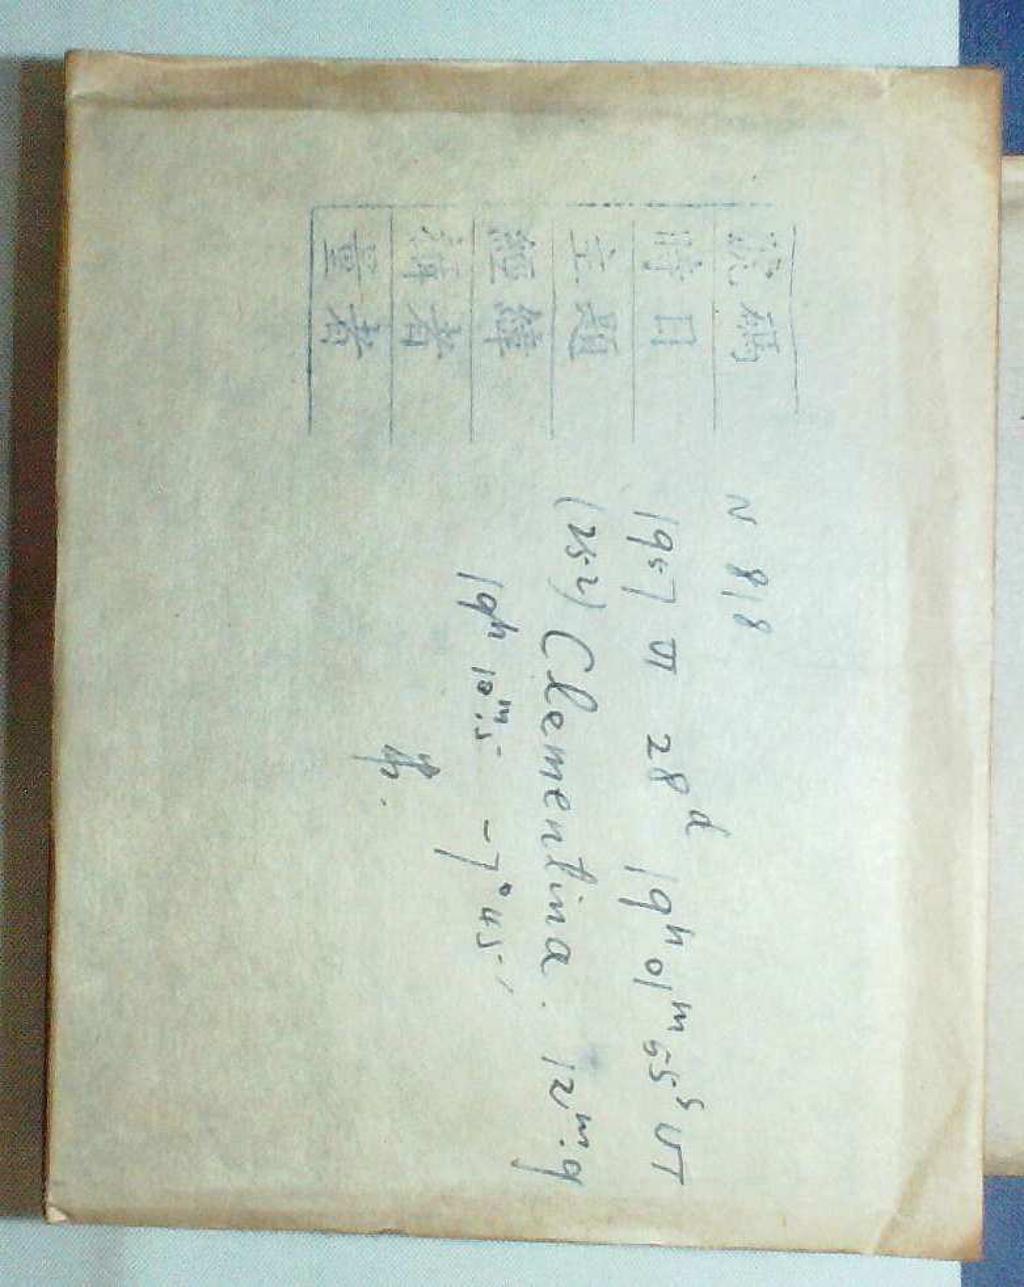 號碼 N 818
時日 1957 VI 28ᵈ 19ʰ 01ᵐ 55ˢ UT
主題 (252) Clementina. 12ᵐ.9
經緯 19ʰ 10ᵐ.5 -7°45′
者
量者